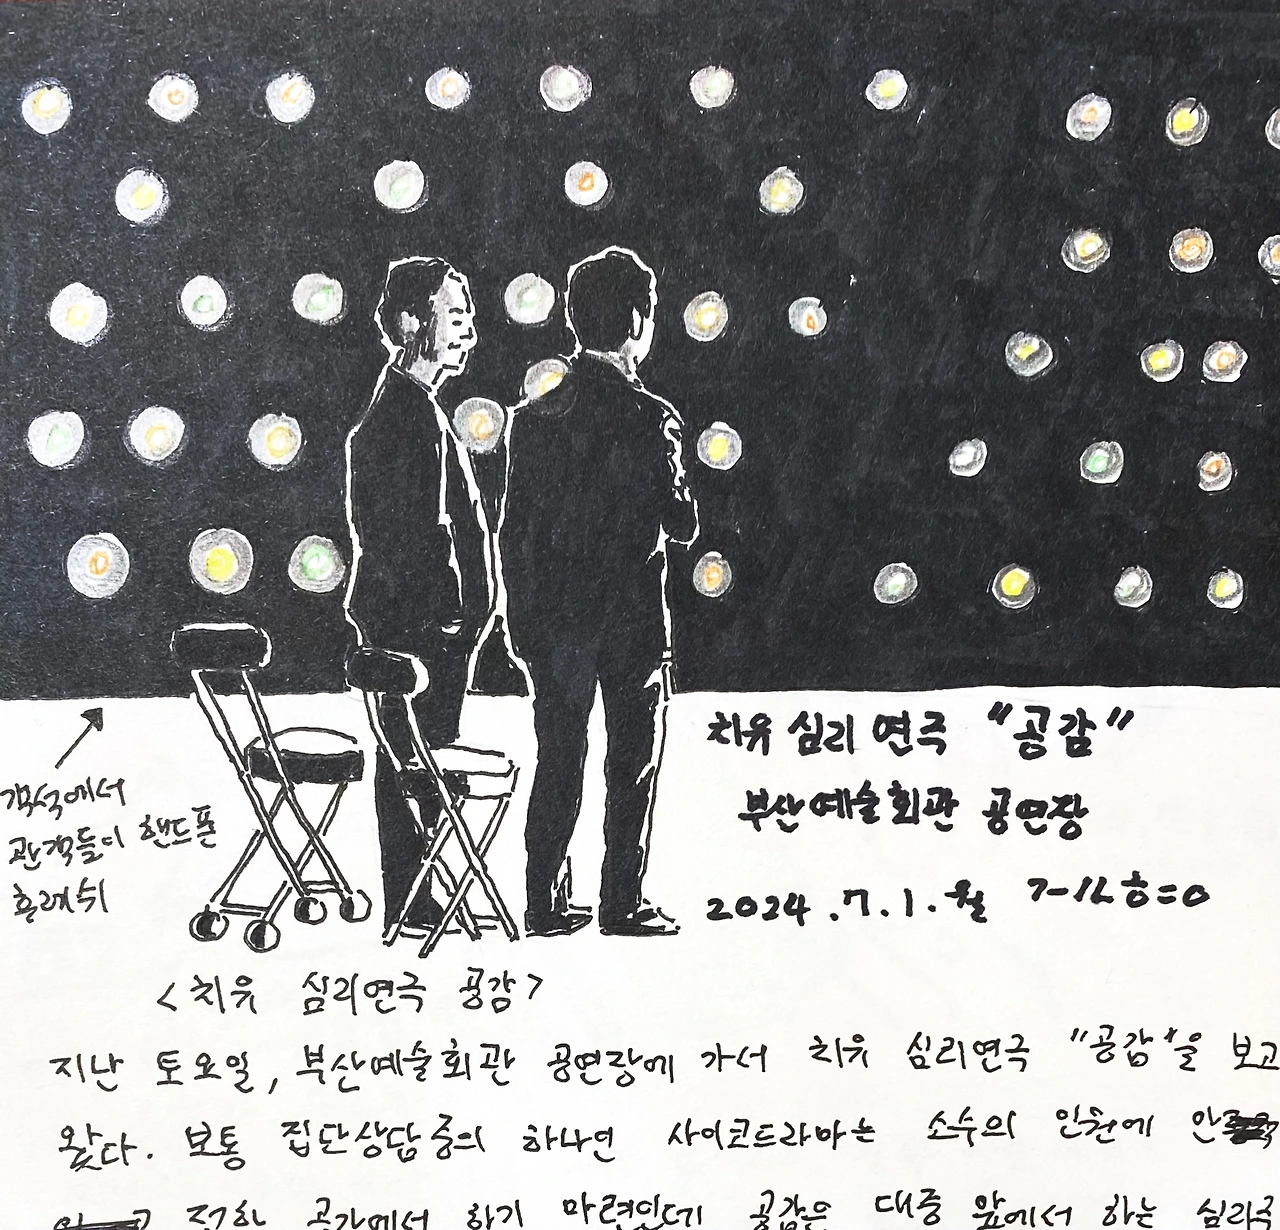 치유 심리 연극 "공감"
부산예술회관 공연장
2024.7.1.월
객석에서
관객들이 핸드폰
후레쉬
<치유 심리연극 공감>
지난 토요일, 부산예술회관 공연장에 가서 치유 심리연극 "공감"을 보고
왔다. 보통 집단상담중의 하나인 사이코드라마는 소수의 인원에 안
공간에서 하기 마련인데 공감은 대중 앞에서 하는 심리극